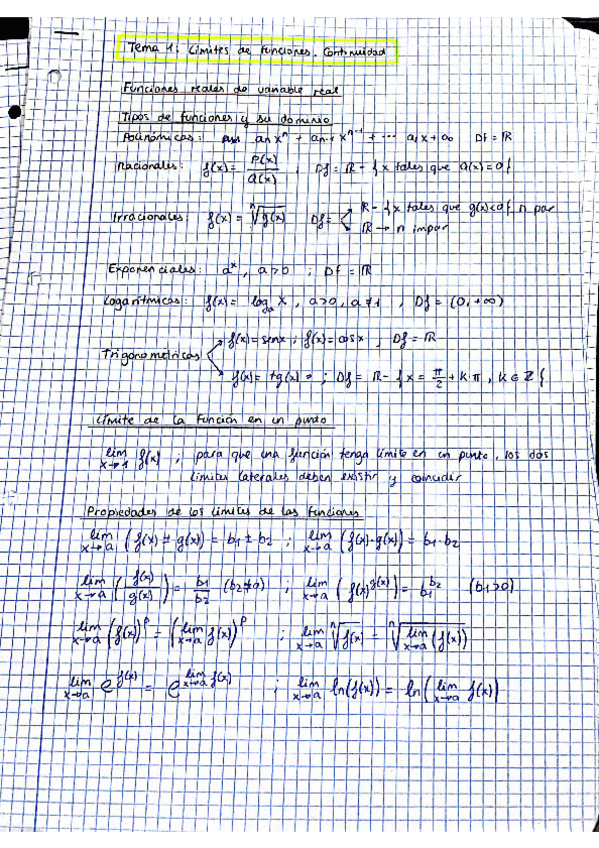 Tema 1: Límites de funciones. Continuidad
Funciones reales de variable real
Tipos de funciones y su dominio
Polinómicas: aₙxⁿ + aₙ₋₁xⁿ⁻¹ + ... a₁x + a₀ Df = ℝ
Racionales: f(x) = P(x)/Q(x) ; Df = ℝ - {x tales que Q(x)=0}
Irracionales: f(x) = ⁿ√g(x) Df = ℝ - {x tales que g(x)<0} n par
ℝ → n impar
Exponenciales: aˣ, a>0 ; Df = ℝ
Logarítmicas: f(x) = logₐ x, a>0, a≠1, Df = (0, +∞)
Trigonométricas f(x)=senx ; f(x)=cosx, Df = ℝ
f(x) = tg(x) ; Df = ℝ - {x = π/2 + kπ, k ∈ ℤ}
Límite de la función en un punto
lim x→1 f(x) ; para que una función tenga límite en un punto, los dos
límites laterales deben existir y coincidir
Propiedades de los límites de las funciones
lim x→a (f(x) ± g(x)) = b₁ ± b₂ ; lim x→a (f(x)·g(x)) = b₁·b₂
lim x→a (f(x)/g(x)) = b₁/b₂ (b₂≠0) ; lim x→a (f(x)^g(x)) = b₁^b₂ (b₁>0)
lim x→a (f(x))^p = (lim x→a f(x))^p ; lim x→a ⁿ√f(x) = ⁿ√(lim x→a (f(x)))
lim x→a e^f(x) = e^(lim x→a f(x)) ; lim x→a ln(f(x)) = ln(lim x→a f(x))